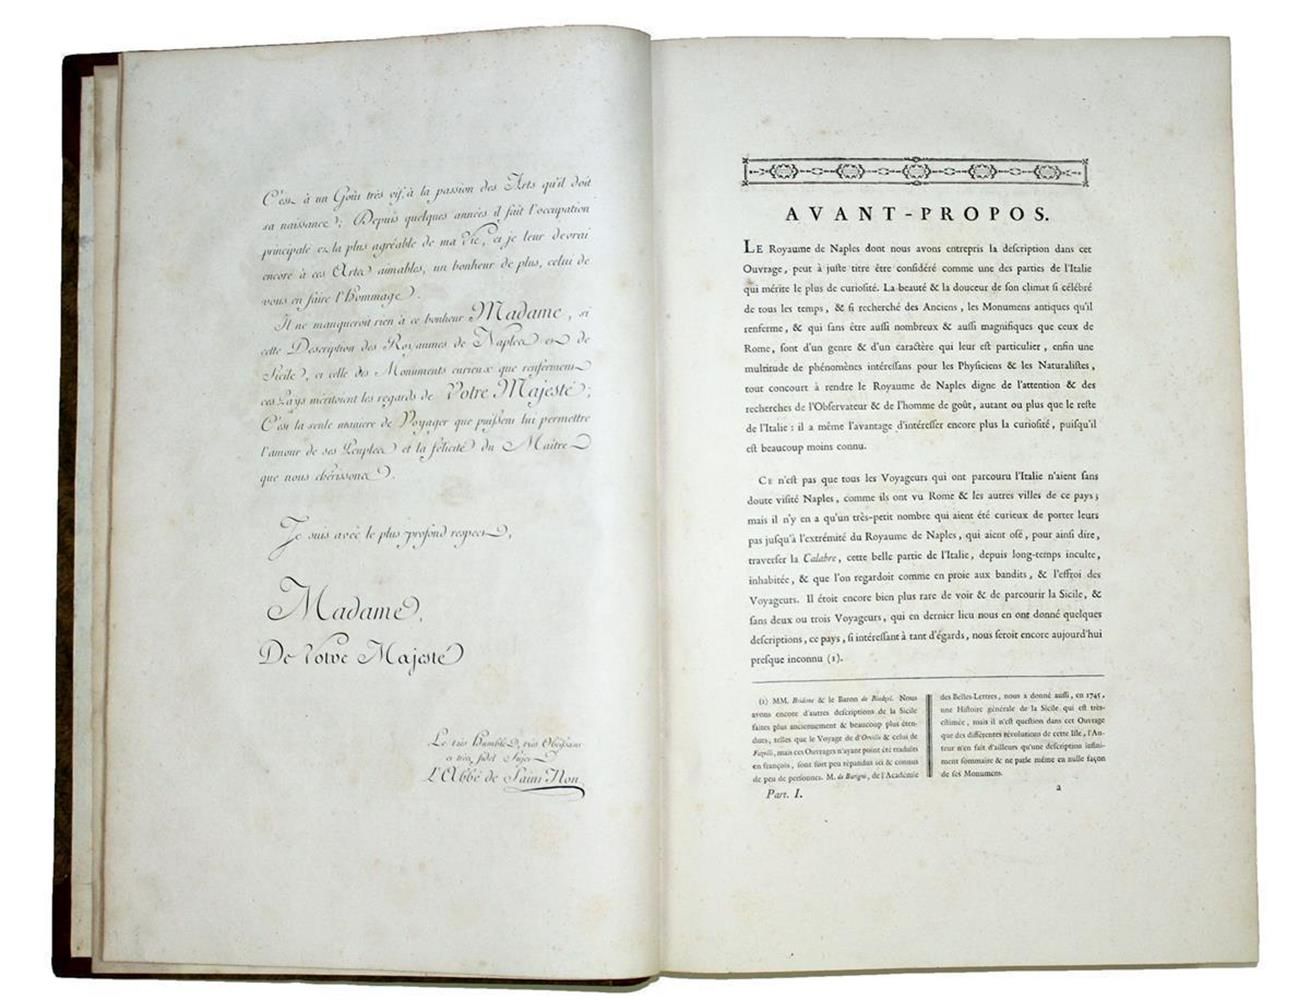 C'est à un Goût très vif, à la passion des Arts qu'il doit
sa naissance; Depuis quelques années il fait l'occupation
principale et la plus agréable de ma Vie, et je leur devrai
encore à ces Arts aimables, un bonheur de plus, celui de
vous en faire l'Hommage.
Il ne manqueroit rien à ce bonheur Madame, si
cette Description des Royaumes de Naples et de
Sicile, et celle des Monuments curieux que renferment
ces Pays méritoient les regards de Votre Majesté;
C'est la seule maniere de Voyager que puissent lui permettre
l'amour de ses Peuples et la félicité du Maître
que nous chérissons.
Je suis avec le plus profond respect,
Madame,
De Votre Majesté
Le très Humble, très Obéissant
et très fidel Sujet
L'Abbé de Saint Non
AVANT-PROPOS.
LE Royaume de Naples dont nous avons entrepris la deſcription dans cet
Ouvrage, peut à juſte titre être conſidéré comme une des parties de l'Italie
qui mérite le plus de curioſité. La beauté & la douceur de ſon climat ſi célébré
de tous les temps, & ſi recherché des Anciens, les Monumens antiques qu'il
renferme, & qui ſans être auſſi nombreux & auſſi magnifiques que ceux de
Rome, ſont d'un genre & d'un caractère qui leur eſt particulier, enfin une
multitude de phénomènes intéreſſans pour les Phyſiciens & les Naturaliſtes,
tout concourt à rendre le Royaume de Naples digne de l'attention & des
recherches de l'Obſervateur & de l'homme de goût, autant ou plus que le reſte
de l'Italie : il a même l'avantage d'intéreſſer encore plus la curioſité, puiſqu'il
eſt beaucoup moins connu.
CE n'eſt pas que tous les Voyageurs qui ont parcouru l'Italie n'aient ſans
doute viſité Naples, comme ils ont vu Rome & les autres villes de ce pays;
mais il n'y en a qu'un très-petit nombre qui aient été curieux de porter leurs
pas juſqu'à l'extrémité du Royaume de Naples, qui aient oſé, pour ainſi dire,
traverſer la Calabre, cette belle partie de l'Italie, depuis long-temps inculte,
inhabitée, & que l'on regardoit comme en proie aux bandits, & l'effroi des
Voyageurs. Il étoit encore bien plus rare de voir & de parcourir la Sicile, &
ſans deux ou trois Voyageurs, qui en dernier lieu nous en ont donné quelques
deſcriptions, ce pays, ſi intéreſſant à tant d'égards, nous ſeroit encore aujourd'hui
preſque inconnu (1).
(1) MM. Bridone & le Baron de Riedeſel. Nous
avons encore d'autres deſcriptions de la Sicile
faites plus anciennement & beaucoup plus éten-
dues, telles que le Voyage de d'Orville & celui de
Fazelli, mais ces Ouvrages n'ayant point été traduits
en françois, ſont fort peu répandus ici & connus
de peu de perſonnes. M. de Burigni, de l'Académie
des Belles-Lettres, nous a donné auſſi, en 1745,
une Hiſtoire générale de la Sicile qui eſt très-
eſtimée, mais il n'eſt queſtion dans cet Ouvrage
que des différentes révolutions de cette Iſle, l'Au-
teur n'en fait d'ailleurs qu'une deſcription infini-
ment ſommaire & ne parle même en nulle façon
de ſes Monumens.
Part. I.
a